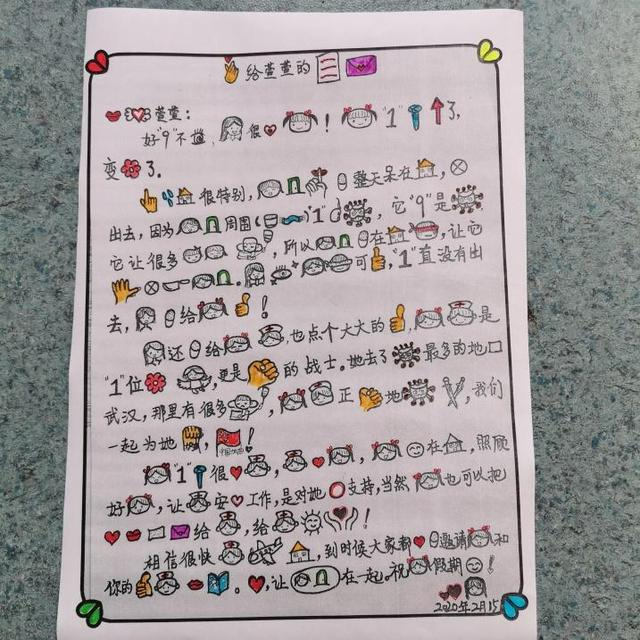 给萱萱的
萱萱：
好"9"不道，很！"1"了，
变了。
很特别，整天呆在，
出去，因为周围"1"，它"9"是
它让很多，所以在，让它
。可，"1"直没有出
去，给！
还给，也点个大大的，是
"1"位，更是的战士。她去了最多的地口
武汉，那里有很多，正地，我们
一起为她，！
"1"很，，在，照顾
好，让安工作，是对她支持，当然也可以把
给，给！
相信很快，到时候大家都邀请和
你的。，让在一起。祝假期！
2020年2月15